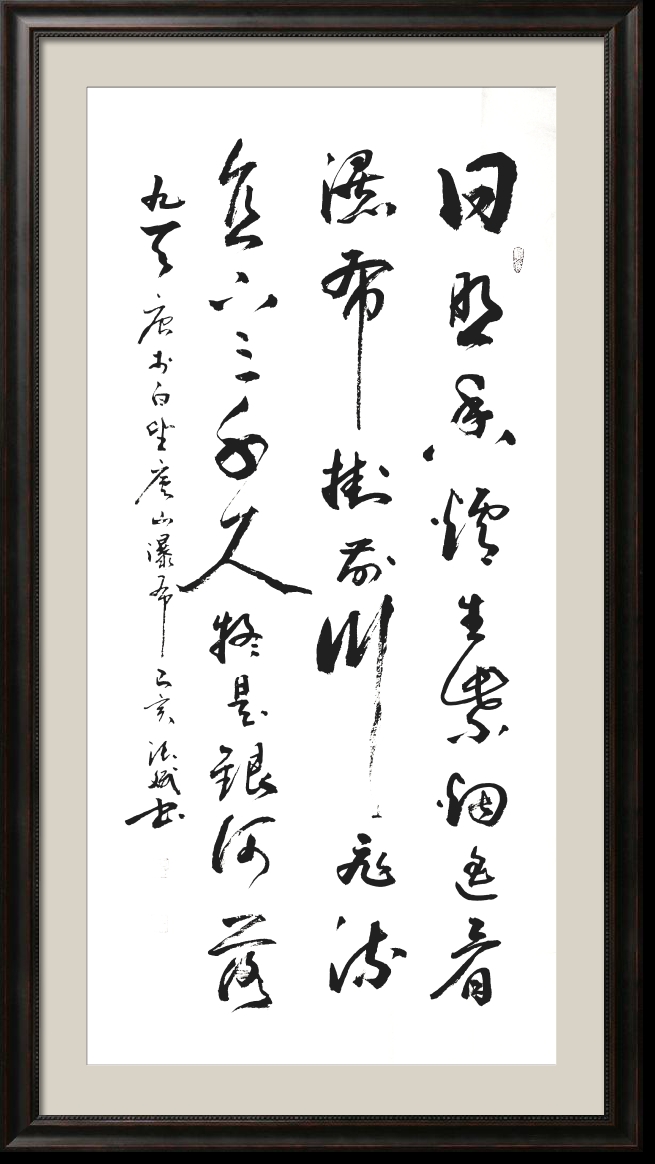 日照香爐生紫烟遙看
瀑布掛前川飛流
直下三千尺疑是銀河落
九天 唐李白望廬山瀑布 己亥 斌书